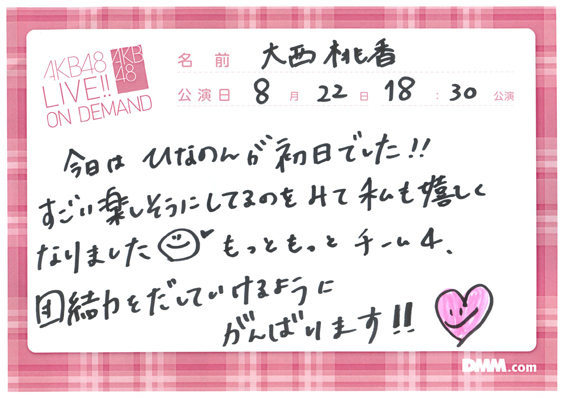 AKB48
LIVE!!
ON DEMAND
AKB
48
名前 大西桃香
公演日 8月22日 18:30公演
今日は ひなのんが初日でした!!
すごい楽しそうにしてるのをみて私も嬉しく
なりました もっともっと チーム4、
団結力をだしていけるように
がんばります!!
DMM.com